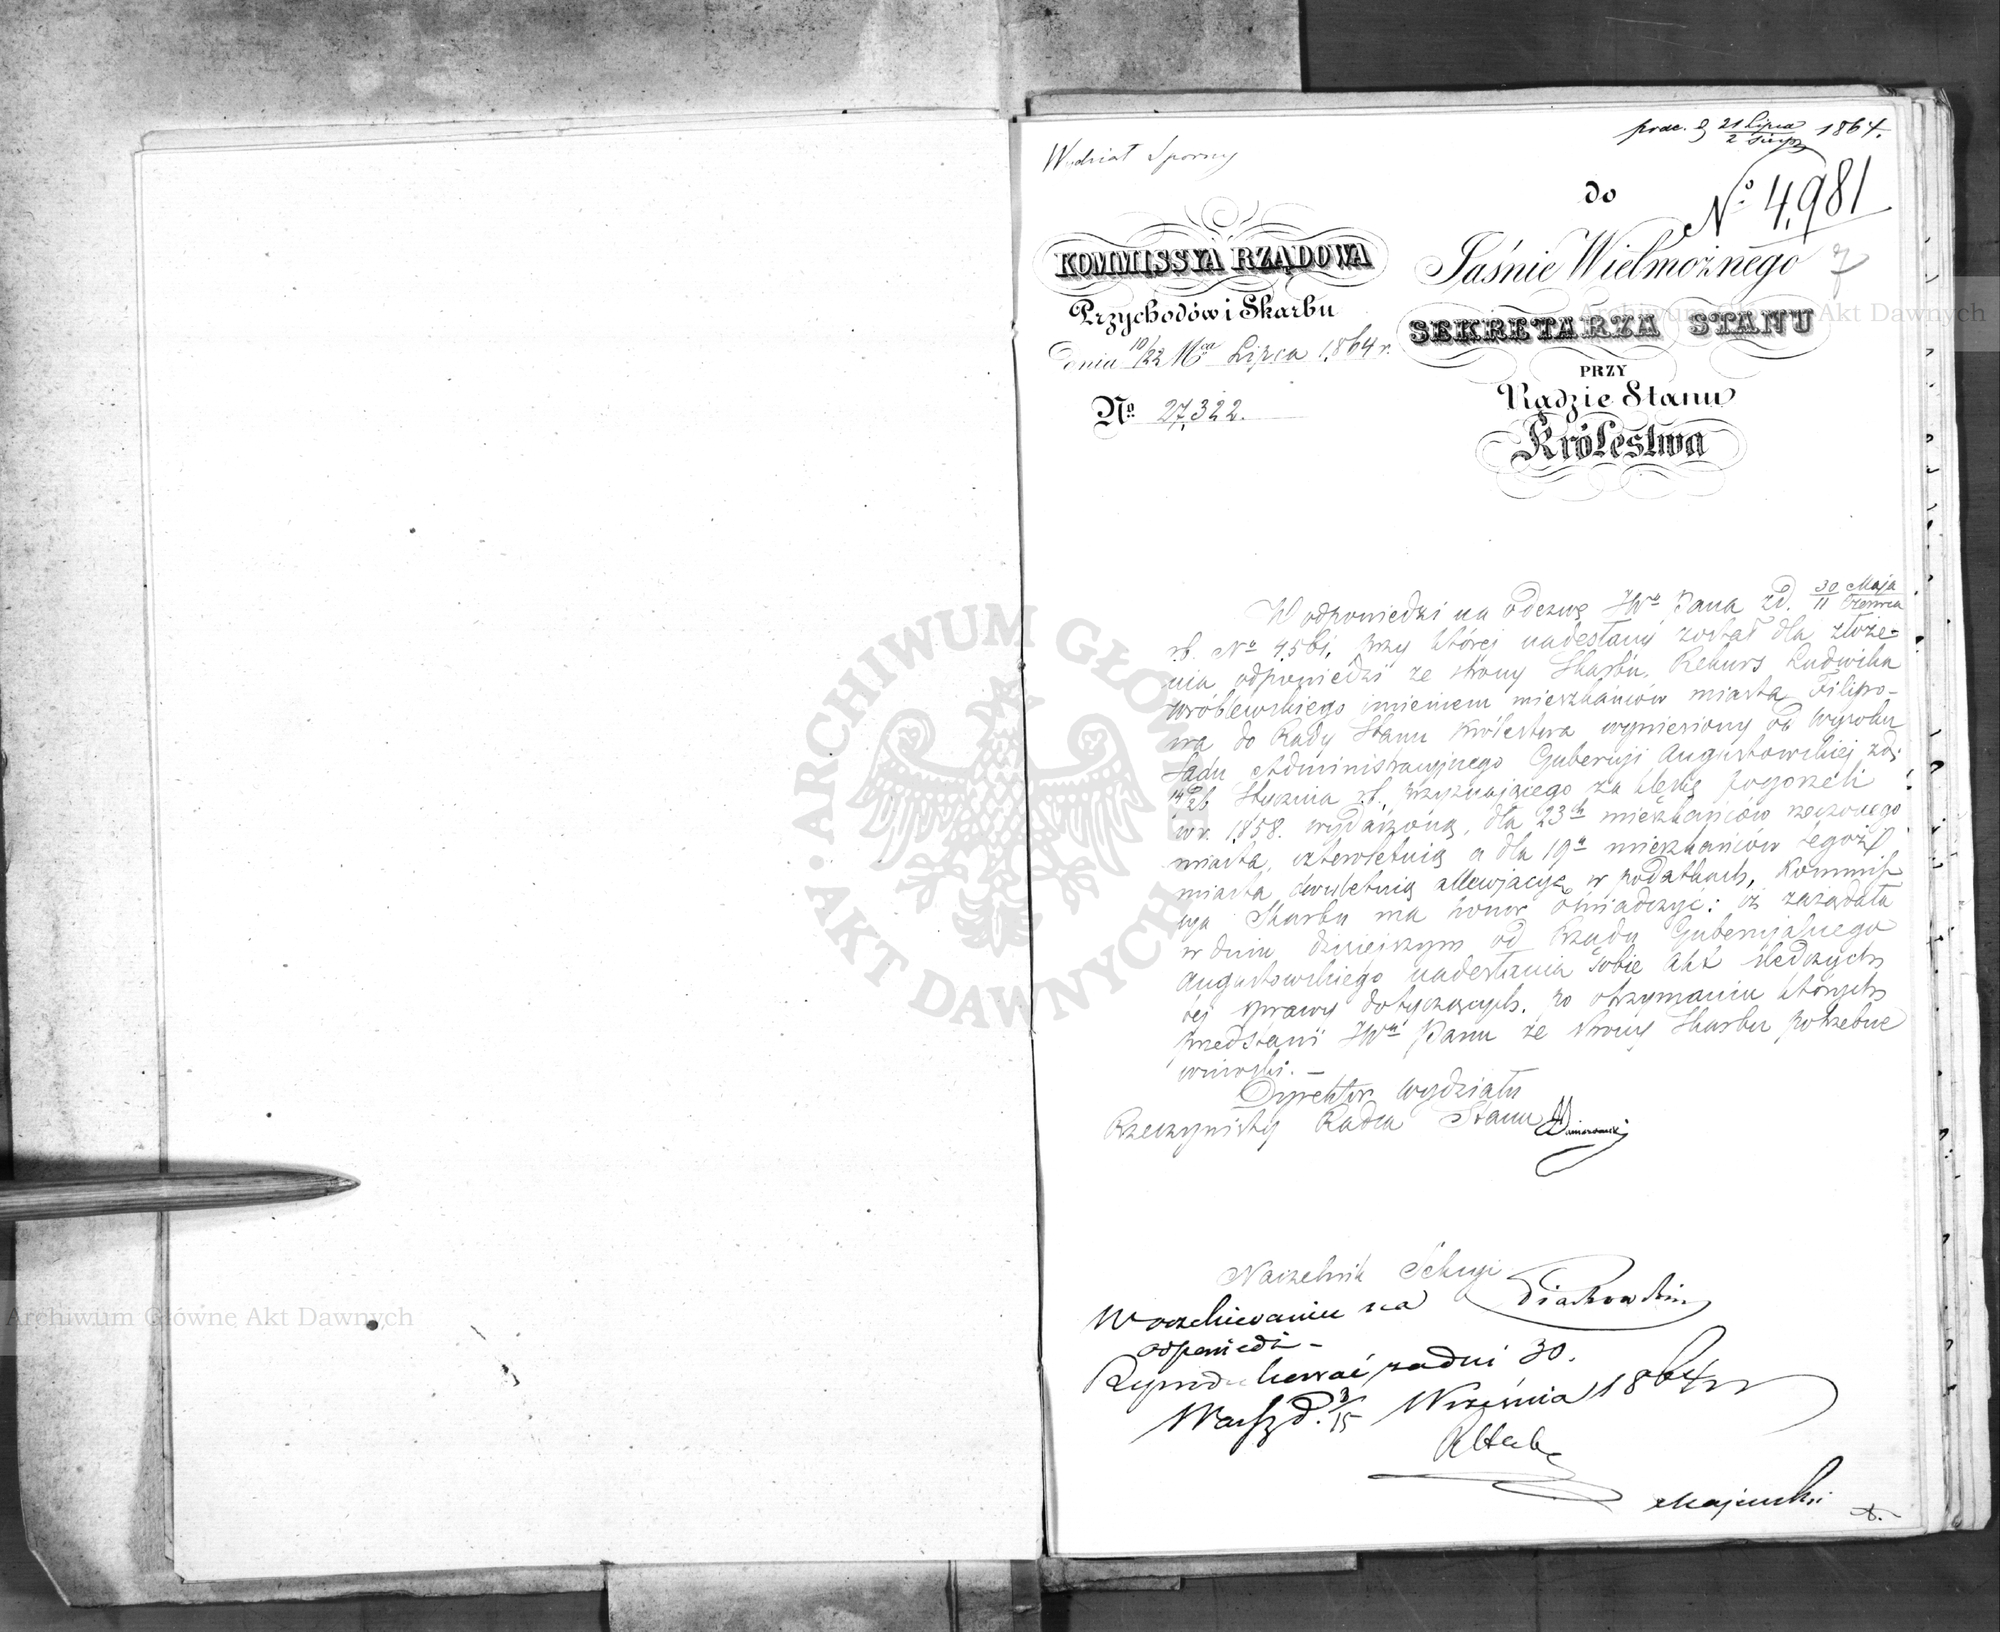 prae. d 21 Lipca / 2 Sierp 1864.
Wydział Sporny
do
No 4,981
KOMMISSYA RZĄDOWA
Przychodów i Skarbu
dnia 10/22 Mca Lipca 1864 r.
No 27,322.
Jaśnie Wielmożnego
7
SEKRETARZA STANU
PRZY
Radzie Stanu
Królestwa
W odpowiedzi na odezwę JWo Pana z d. 30 Maja / 11 Czerwca
r.b. No 4,561, przy której nadesłany został dla złoże-
nia odpowiedzi ze strony Skarbu, Rekurs Ludwika
Wróblewskiego imieniem mieszkańców miasta Filipo-
wa do Rady Stanu Królestwa wyniesiony od wyroku
Sądu Administracyjnego Gubernji Augustowskiej z d.
14/26 Stycznia r.b., przyznającego za klęskę pogorzeli
w r. 1858 wydarzoną, dla 23ch mieszkańców rzeczonego
miasta, czteroletnią a dla 19u mieszkańców tegoż
miasta dwuletnią allewjacyę w podatkach, Kommis-
sya Skarbu ma honor oświadczyć: iż zażądała
w dniu dzisiejszym od Rządu Gubernjalnego
Augustowskiego nadesłania sobie Akt śledczych
tej sprawy dotyczących, po otrzymaniu których
przedstawi JWu Panu ze strony Skarbu potrzebne
wnioski. —
Dyrektor Wydziału
Rzeczywisty Radca Stanu
Naczelnik Sekcyi
W oczekiwaniu na
odpowiedź –
Reprodukować za dni 30.
Warsz. d. 3/15 Września 1864 r
Majewski
Archiwum Główne Akt Dawnych
ARCHIWUM GŁÓWNE AKT DAWNYCH
Archiwum Główne Akt Dawnych